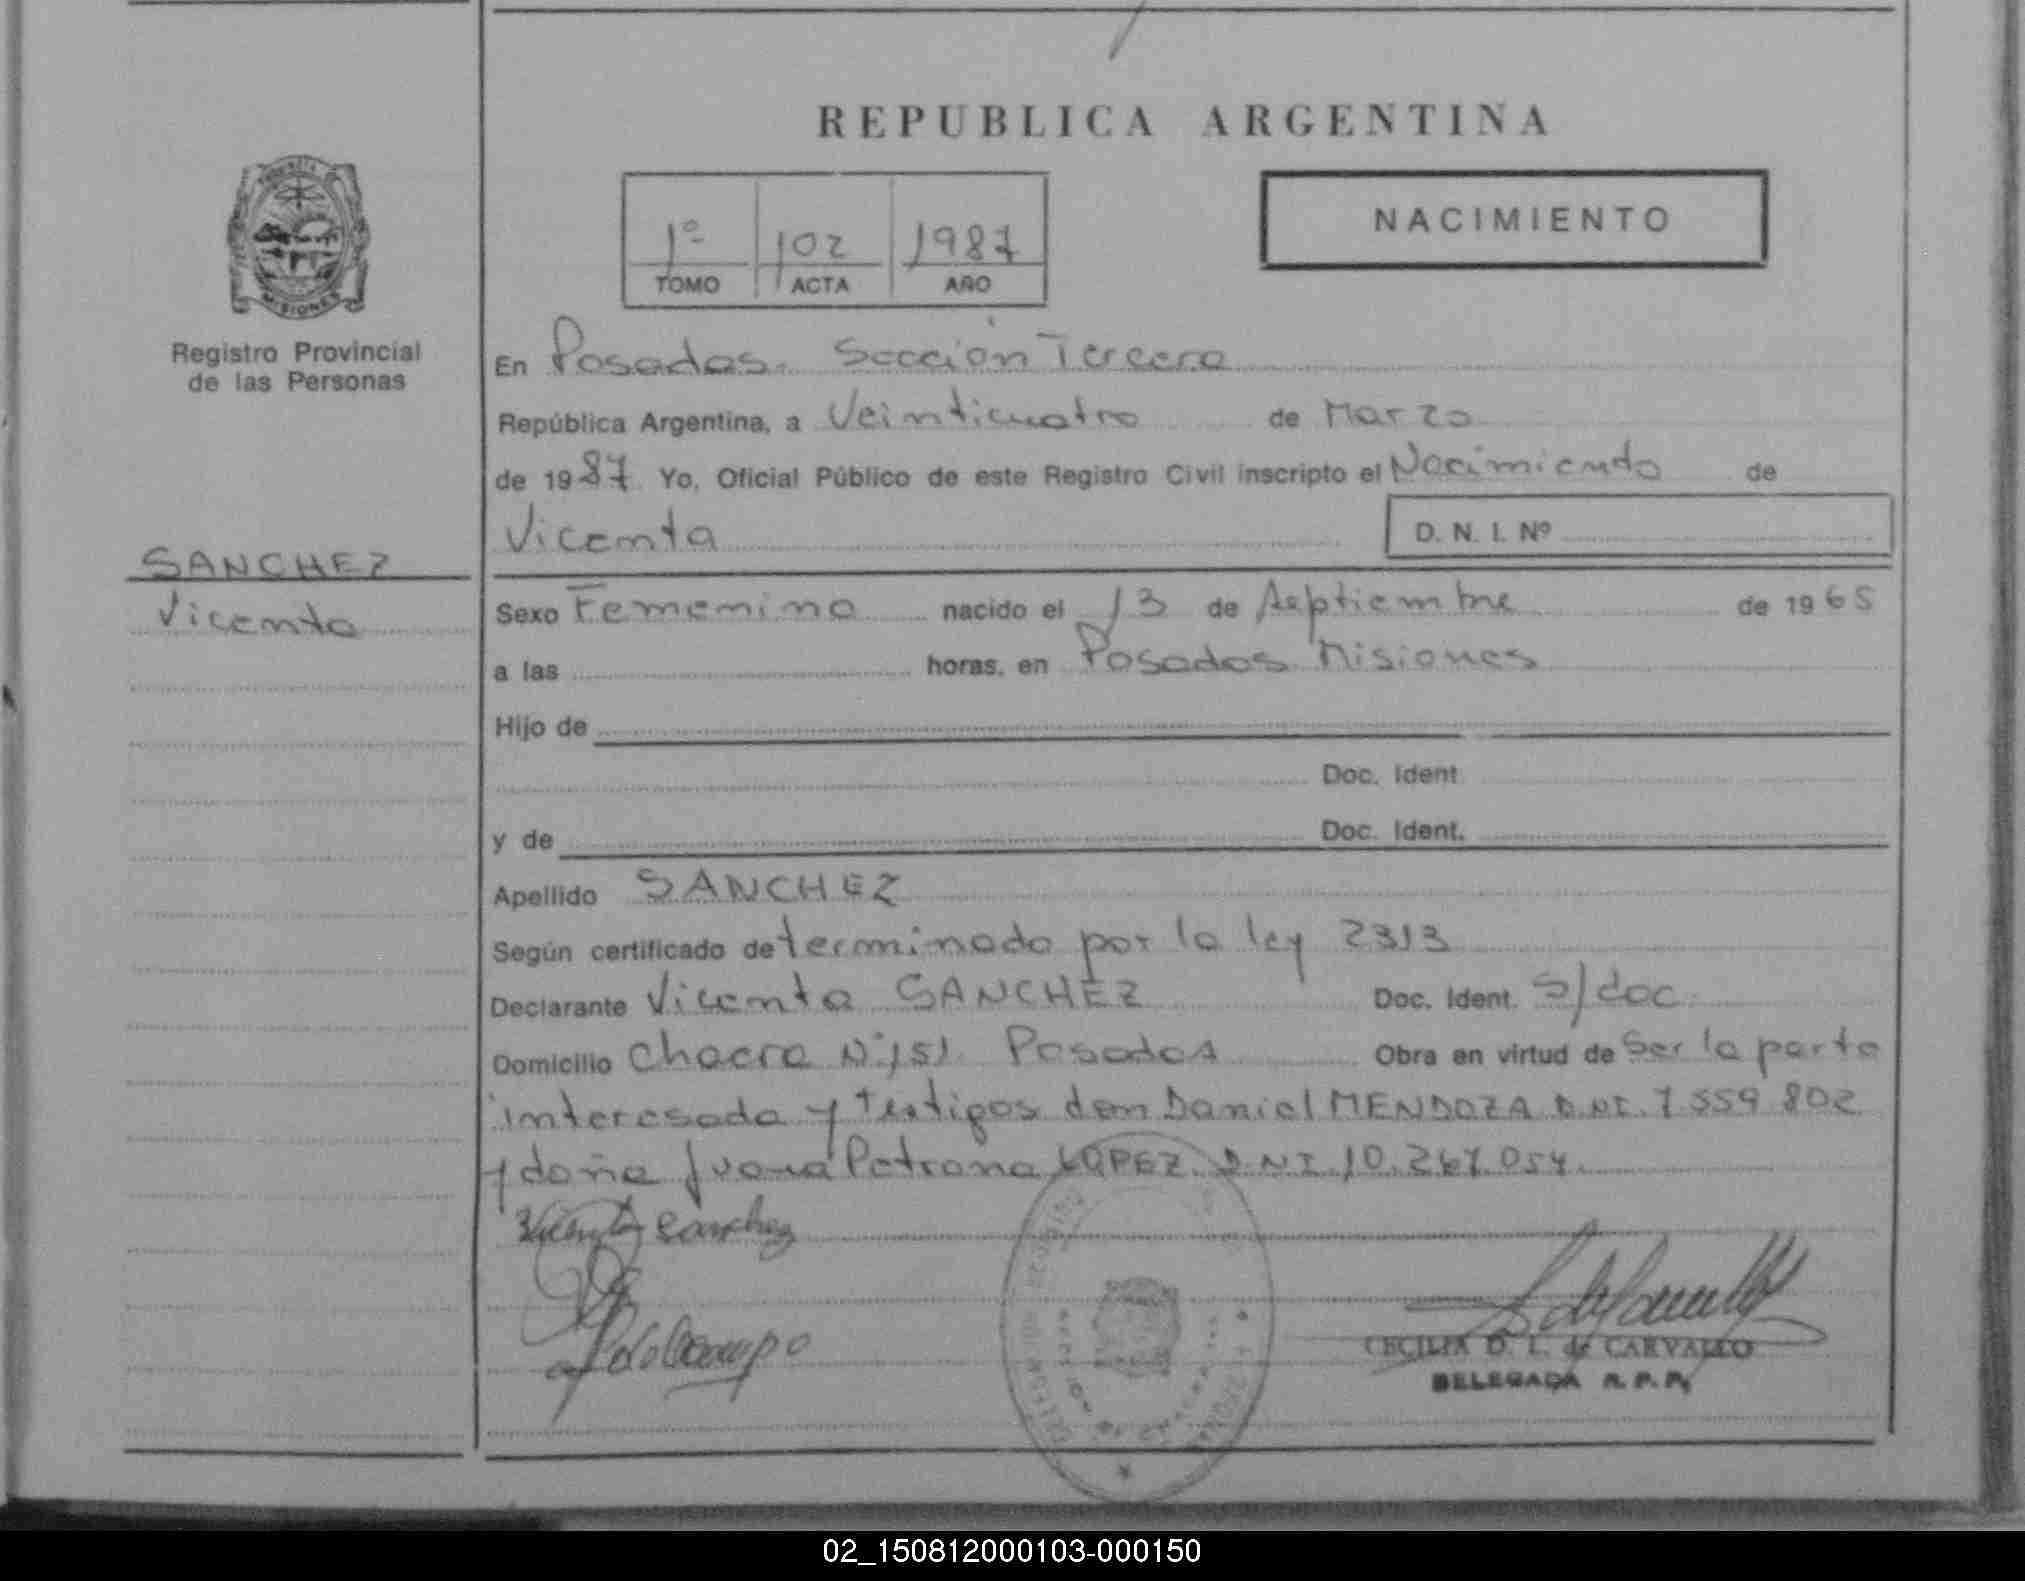 REPUBLICA ARGENTINA
NACIMIENTO
1º 102 1987
TOMO ACTA AÑO
MISIONES
Registro Provincial
de las Personas
En Posadas. Sección Tercera
República Argentina, a Veinticuatro de Marzo
de 1987. Yo, Oficial Público de este Registro Civil inscripto el Nacimiento de
Vicenta D. N. I. Nº
SANCHEZ
Vicenta
Sexo Femenino nacido el 13 de septiembre de 1965
a las horas, en Posadas Misiones
Hijo de
Doc. Ident
y de Doc. Ident.
Apellido SANCHEZ
Según certificado determinado por la ley 2313
Declarante Vicenta SANCHEZ Doc. Ident. S/doc.
Domicilio Chacra Nº 151. Posadas Obra en virtud de ser la parte
interesada y testigos don Daniel MENDOZA D.NI. 7559802
y doña Juana Petrona LOPEZ D.NI 10.267.054.
Vicenta Sanchez
CECILIA D. L. de CARVALLO
DELEGADA R. P. P.
02_150812000103-000150